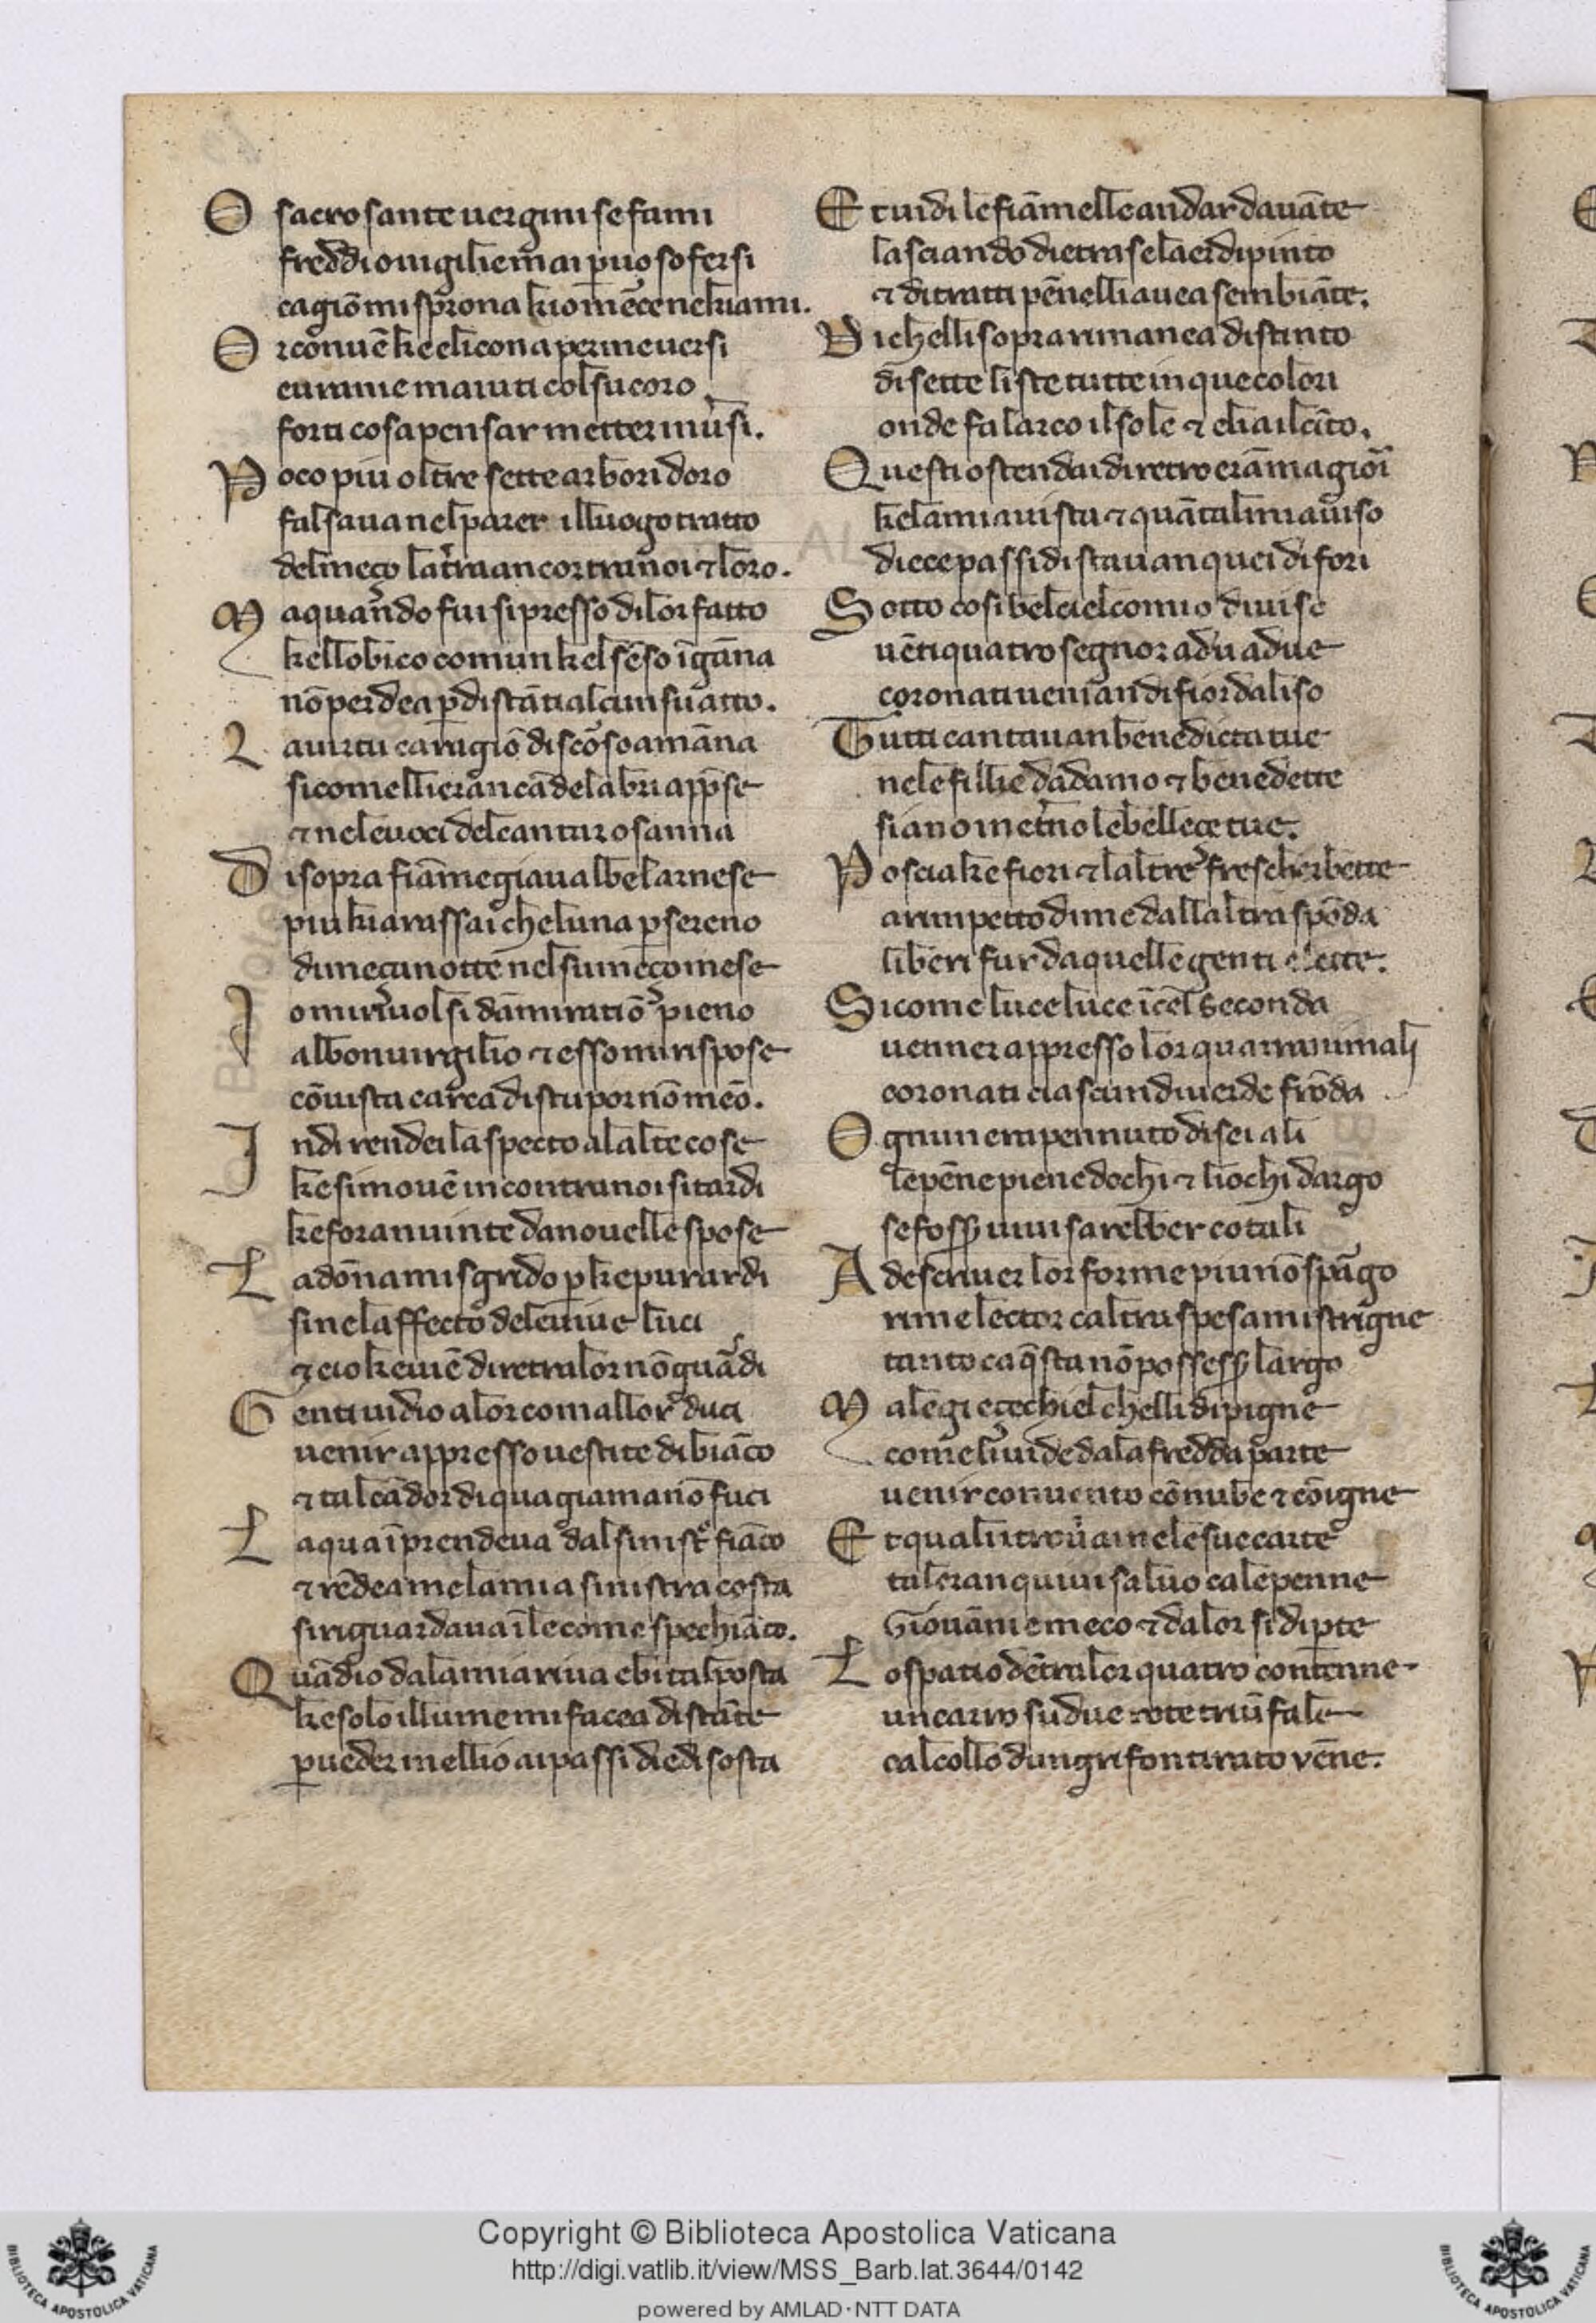 O sacro sante uergini se fami
freddi o uigilie mai p uuo sofersi
cagiō mi sprona kio mēcene kiami.
Or conuē ke elicona per me uersi
eurinie maiuti col su coro
forti cosa pensar metter in uersi.
Poco piu oltre sette arbori doro
falsaua nel parer il luogo tratto
del meço latria ancor tra noi ⁊ loro.
Ma quando fui si presso di lor fatto
kellobieco comun kel sēso īganna
nō perdea p distātia alcun su atto.
La uirtu ca ragiō discōso amāna
si comelli erā cādelabri apprese
⁊ nele uoci del cantar osanna
Di sopra fiāmegiaua il bel arnese
piu kiar assai che luna p sereno
di meça notte nel su meço mese
Io mi riuolsi dāmiratiō pieno
al bon uirgilio ⁊ esso mi rispose
cō uista carca di stupor nō meō.
Indi rendei laspecto alalte cose
ke si mouē incontra noi si tardi
ke foran uinte da nouelle spose
La dōna mi sgrido p ke pur ardi
si nelaffecto dele uiue luci
⁊ cio ke uiē diretra lor nō guardi
Genti uidio alor com allor duci
venir appresso uestite di biāco
⁊ tal cādor di qua gia mai nō fuci
Laqua īprendeua dal sinistro fiāco
⁊ rēdea me la mia sinistra costa
si riguardaua ī lei come spechiāco.
Quādio dala mia riua ebbi tal posta
ke solo il lume mi facea distāte
p ueder mellio ai passi diedi sosta
Et uidi le fiāmelle andar dauāte
lasciando dietra se laer dipinto
⁊ di tratti pēnelli auea sembiāte.
Di chelli sopra rimanea distinto
di sette liste tutte in que colori
onde fa larco il sole ⁊ elia il cīto.
Questi ostendai diretro erā magiori
ke la mia uista ⁊ quāto al mi auiso
diece passi distauan quei di fori
Sotto cosi bel ciel comio diuiso
uētiquatro segnor a du a due
coronati uenian di fiordaliso
Tutti cantauan benedicta tue
nele fillie dadamo ⁊ benedette
siano in eterno le belleçe tue.
Poscia ke fiori ⁊ laltre fresche erbette
a rimpetto di me dallaltra spōda
liberi fur da quelle genti elette.
Si come luce luce ī cel seconda
uenner appresso lor quatranimali
coronati ciascun di uerde frōda
Ognun era pennuto di sei ali
le pēne piene dochi ⁊ liochi dargo
se fosser uiui sarebber cotali
A descriuer lor forme piu nō spargo
rime lector caltra spesa mi strigne
tanto ca q̄sta nō posso esser largo
Ma legi eçechiel chelli dipigne
come li uide dala fredda parte
uenir con uento cō nube ⁊ cō igne
Et quali trouerai nele sue carte
tal eran quiui saluo cale penne
Giouāni e meco ⁊ da lor si diparte
Lo spatio dētra lor quatro contenne
un carro su due rote triūfale
cal collo dun grifon tirato vēne.
Copyright © Biblioteca Apostolica Vaticana
http://digi.vatlib.it/view/MSS_Barb.lat.3644/0142
powered by AMLAD·NTT DATA
BIBLIOTECA APOSTOLICA VATICANA
BIBLIOTECA APOSTOLICA VATICANA